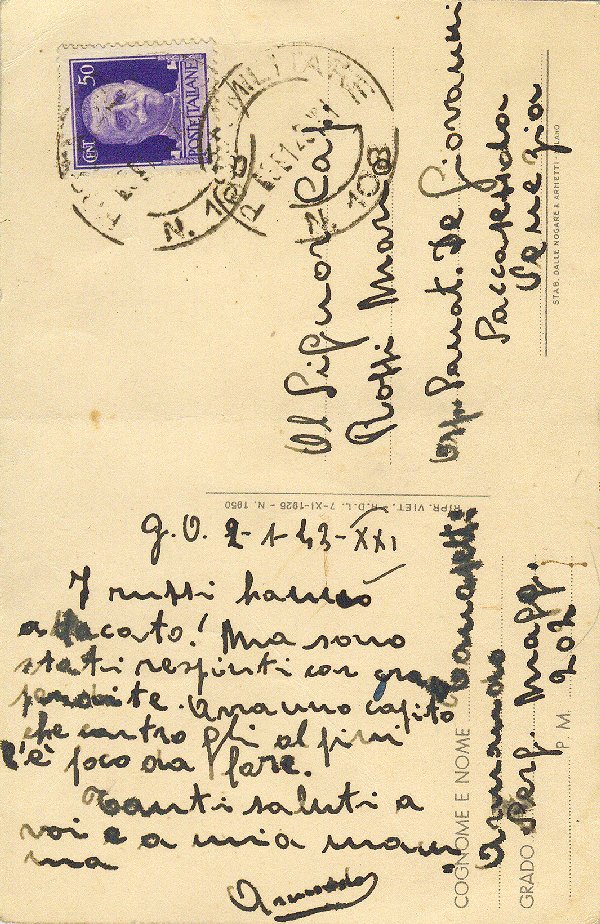 CENT 50
POSTE ITALIANE
MILITARE
N. 108
N. 108
Al Signor Cap.
Rossi Mari
Osp. Sanat. De Giovanni
Saccasessola
Venezia
STAB. DALLE NOGARE & ARMETTI - MILANO
RIPR. VIET. - R.D.L. 7-XI-1925 - N. 1950
g. O. 2-1-43-XXI
I russi hanno
attaccato! Ma sono
stati respinti con gravi
perdite. Avranno capito
che contro gli alpini
c'è poco da fare.
Tanti saluti a
voi e a mia mam
ma
Armando
COGNOME E NOME
Armando
GRADO Serg. Magg.
P. M. 202